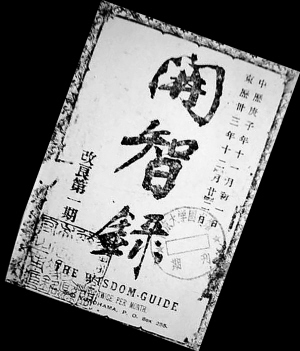 中歷庚子年十一月初一日
東歷卅三年十二月廿二日
開智錄
改良第一期
THE WISDOM-GUIDE
TWICE PER MONTH
YOKOHAMA, P. O. Box 255.